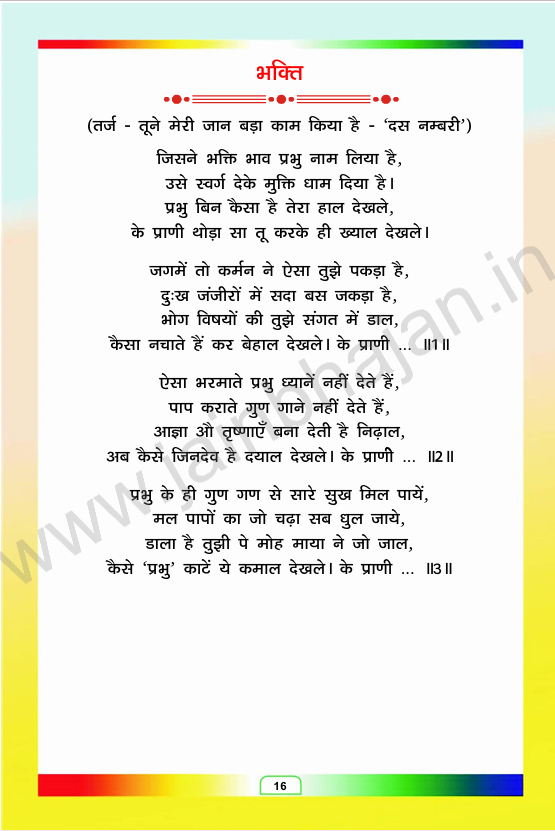 भक्ति
(तर्ज - तूने मेरी जान बड़ा काम किया है - ‘दस नम्बरी’)
जिसने भक्ति भाव प्रभु नाम लिया है,
उसे स्वर्ग देके मुक्ति धाम दिया है।
प्रभु बिन कैसा है तेरा हाल देखले,
के प्राणी थोड़ा सा तू करके ही ख्याल देखले।
जगमें तो कर्मन ने ऐसा तुझे पकड़ा है,
दुःख जंजीरों में सदा बस जकड़ा है,
भोग विषयों की तुझे संगत में डाल,
कैसा नचाते हैं कर बेहाल देखले। के प्राणी ... ॥1॥
ऐसा भरमाते प्रभु ध्यानें नहीं देते हैं,
पाप कराते गुण गाने नहीं देते हैं,
आज्ञा औ तृष्णाएँ बना देती है निढ़ाल,
अब कैसे जिनदेव है दयाल देखले। के प्राणी ... ॥2॥
प्रभु के ही गुण गण से सारे सुख मिल पायें,
मल पापों का जो चढ़ा सब धुल जाये,
डाला है तुझी पे मोह माया ने जो जाल,
कैसे ‘प्रभु’ काटें ये कमाल देखले। के प्राणी ... ॥3॥
www.jainbhajan.in
16